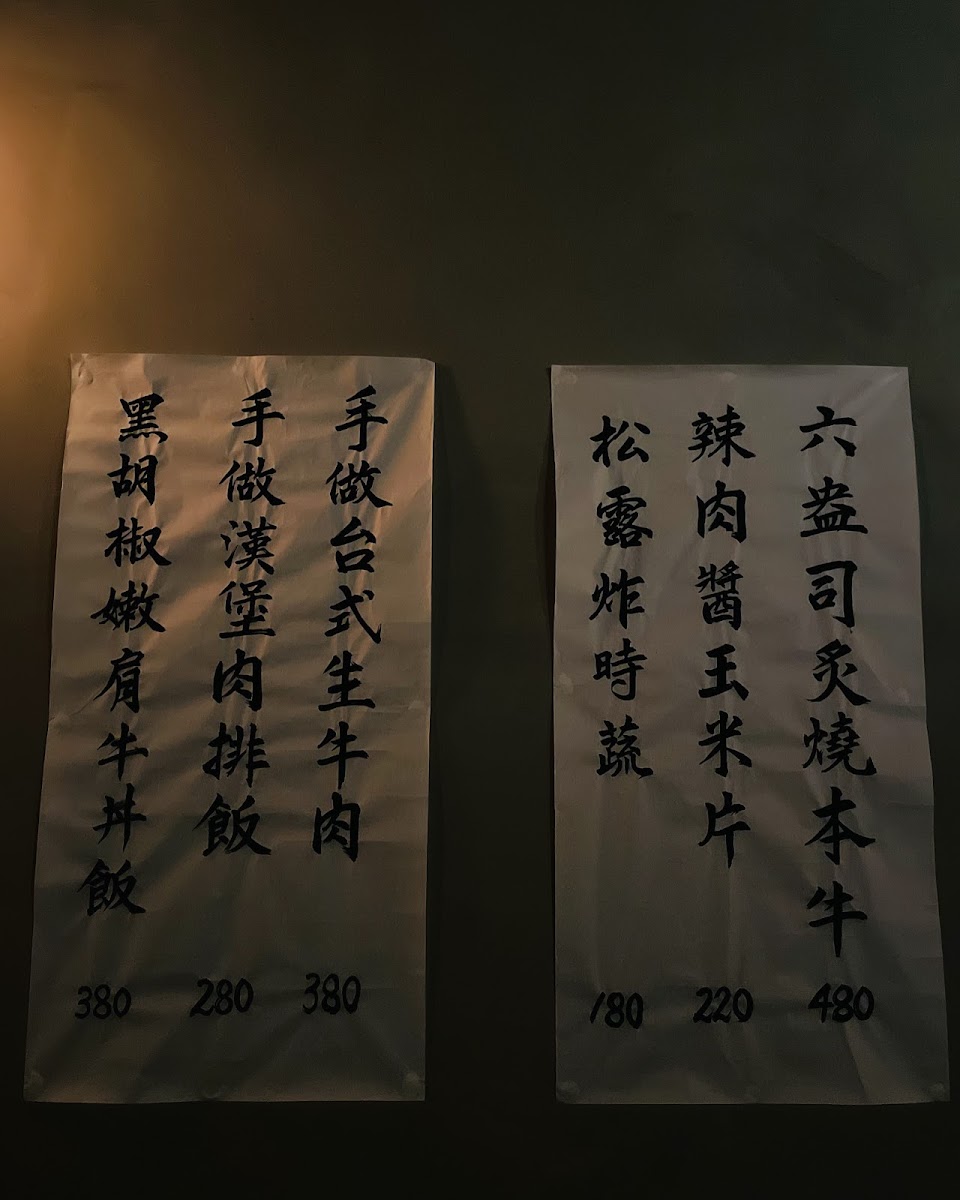 六盎司炙燒本牛 480
辣肉醬玉米片 220
松露炸時蔬 180
手做台式生牛肉 380
手做漢堡肉排飯 280
黑胡椒嫩肩牛丼飯 380